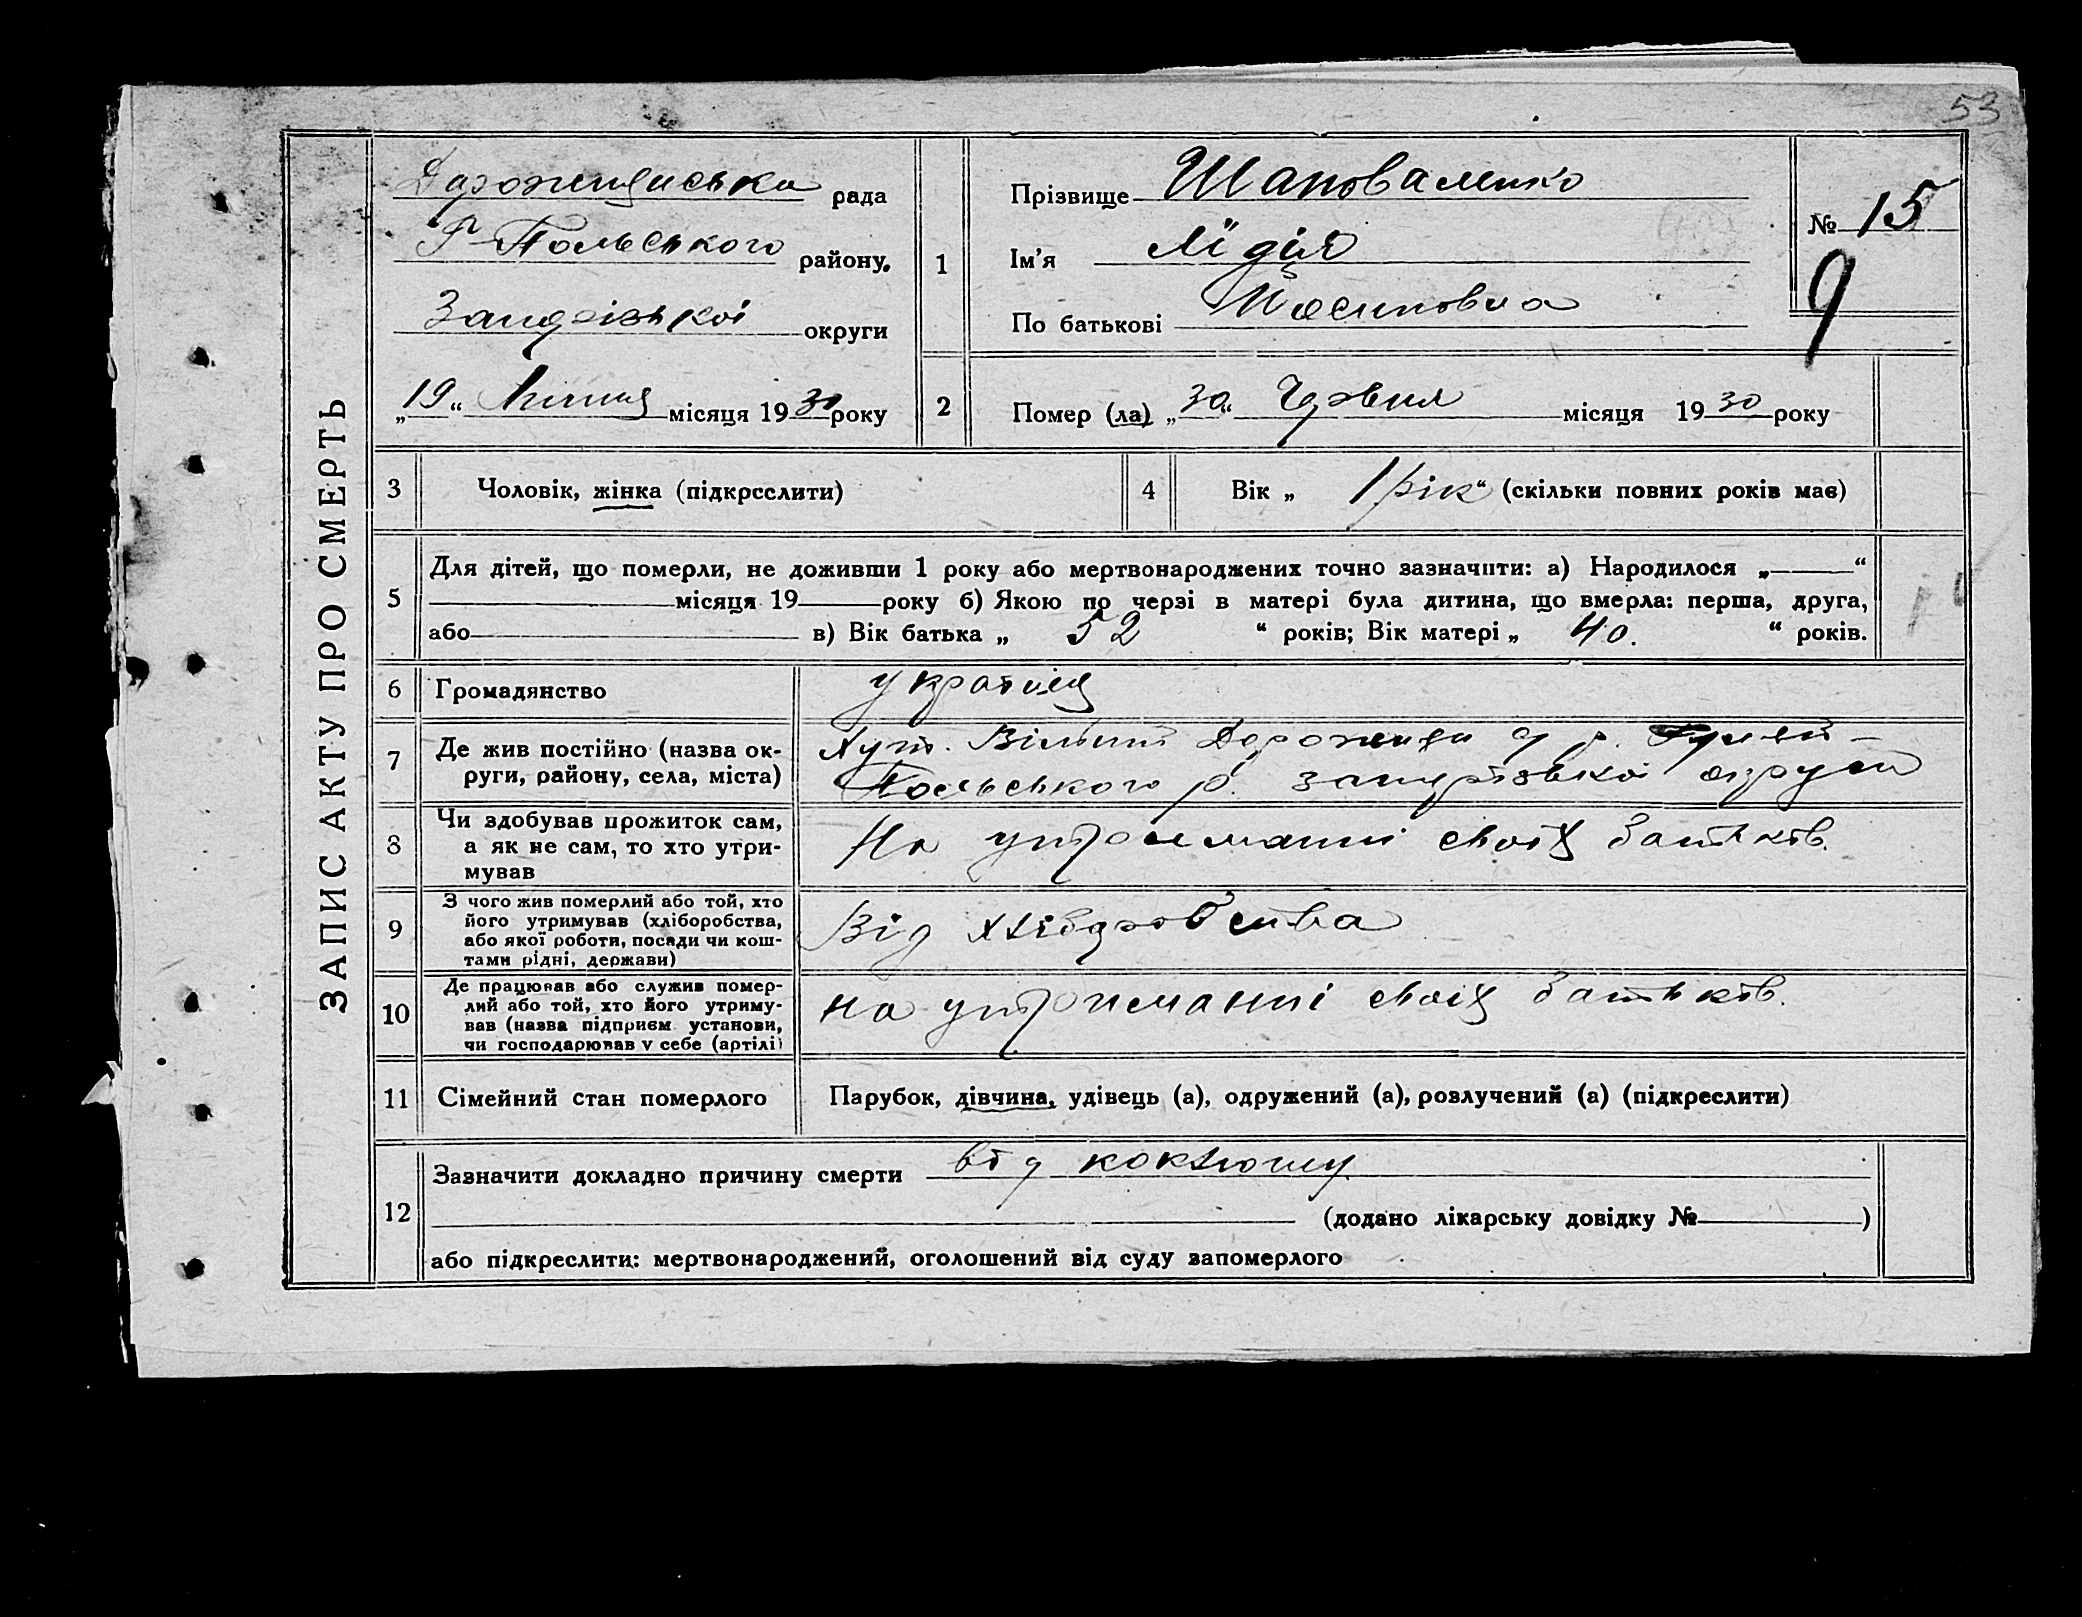 53
ЗАПИС АКТУ ПРО СМЕРТЬ
рада
Г-Польського району,
округи
„19“ Липня місяця 1930 року
1
Прізвище Шаповаленко
Ім'я Лідія
По батькові Йосиповна
№ 15
9
2
Помер (ла) „30“ Червня місяця 1930 року
3
Чоловік, жінка (підкреслити)
4
Вік „ 1 рік“ (скільки повних років має)
5
Для дітей, що померли, не доживши 1 року або мертвонароджених точно зазначити: а) Народилося „ “
місяця 19 року б) Якою по черзі в матері була дитина, що вмерла: перша, друга,
або в) Вік батька „ 52 “ років; Вік матері „ 40. “ років.
6
Громадянство
7
Де жив постійно (назва ок-
руги, району, села, міста)
Хут. Вільний
Польського р. округи
8
Чи здобував прожиток сам,
а як не сам, то хто утри-
мував
На утриманні своїх батьків.
9
З чого жив померлий або той, хто
його утримував (хліборобства,
або якої роботи, посади чи кош-
тами рідні, держави)
Від хліборобства
10
Де працював або служив помер-
лий або той, хто його утриму-
вав (назва підприєм. установи,
чи господарював у себе (артілі)
на утриманні своїх батьків.
11
Сімейний стан померлого
Парубок, дівчина, удівець (а), одружений (а), розлучений (а) (підкреслити)
12
Зазначити докладно причину смерти від коклюшу
(додано лікарську довідку № )
або підкреслити: мертвонароджений, оголошений від суду запомерлого